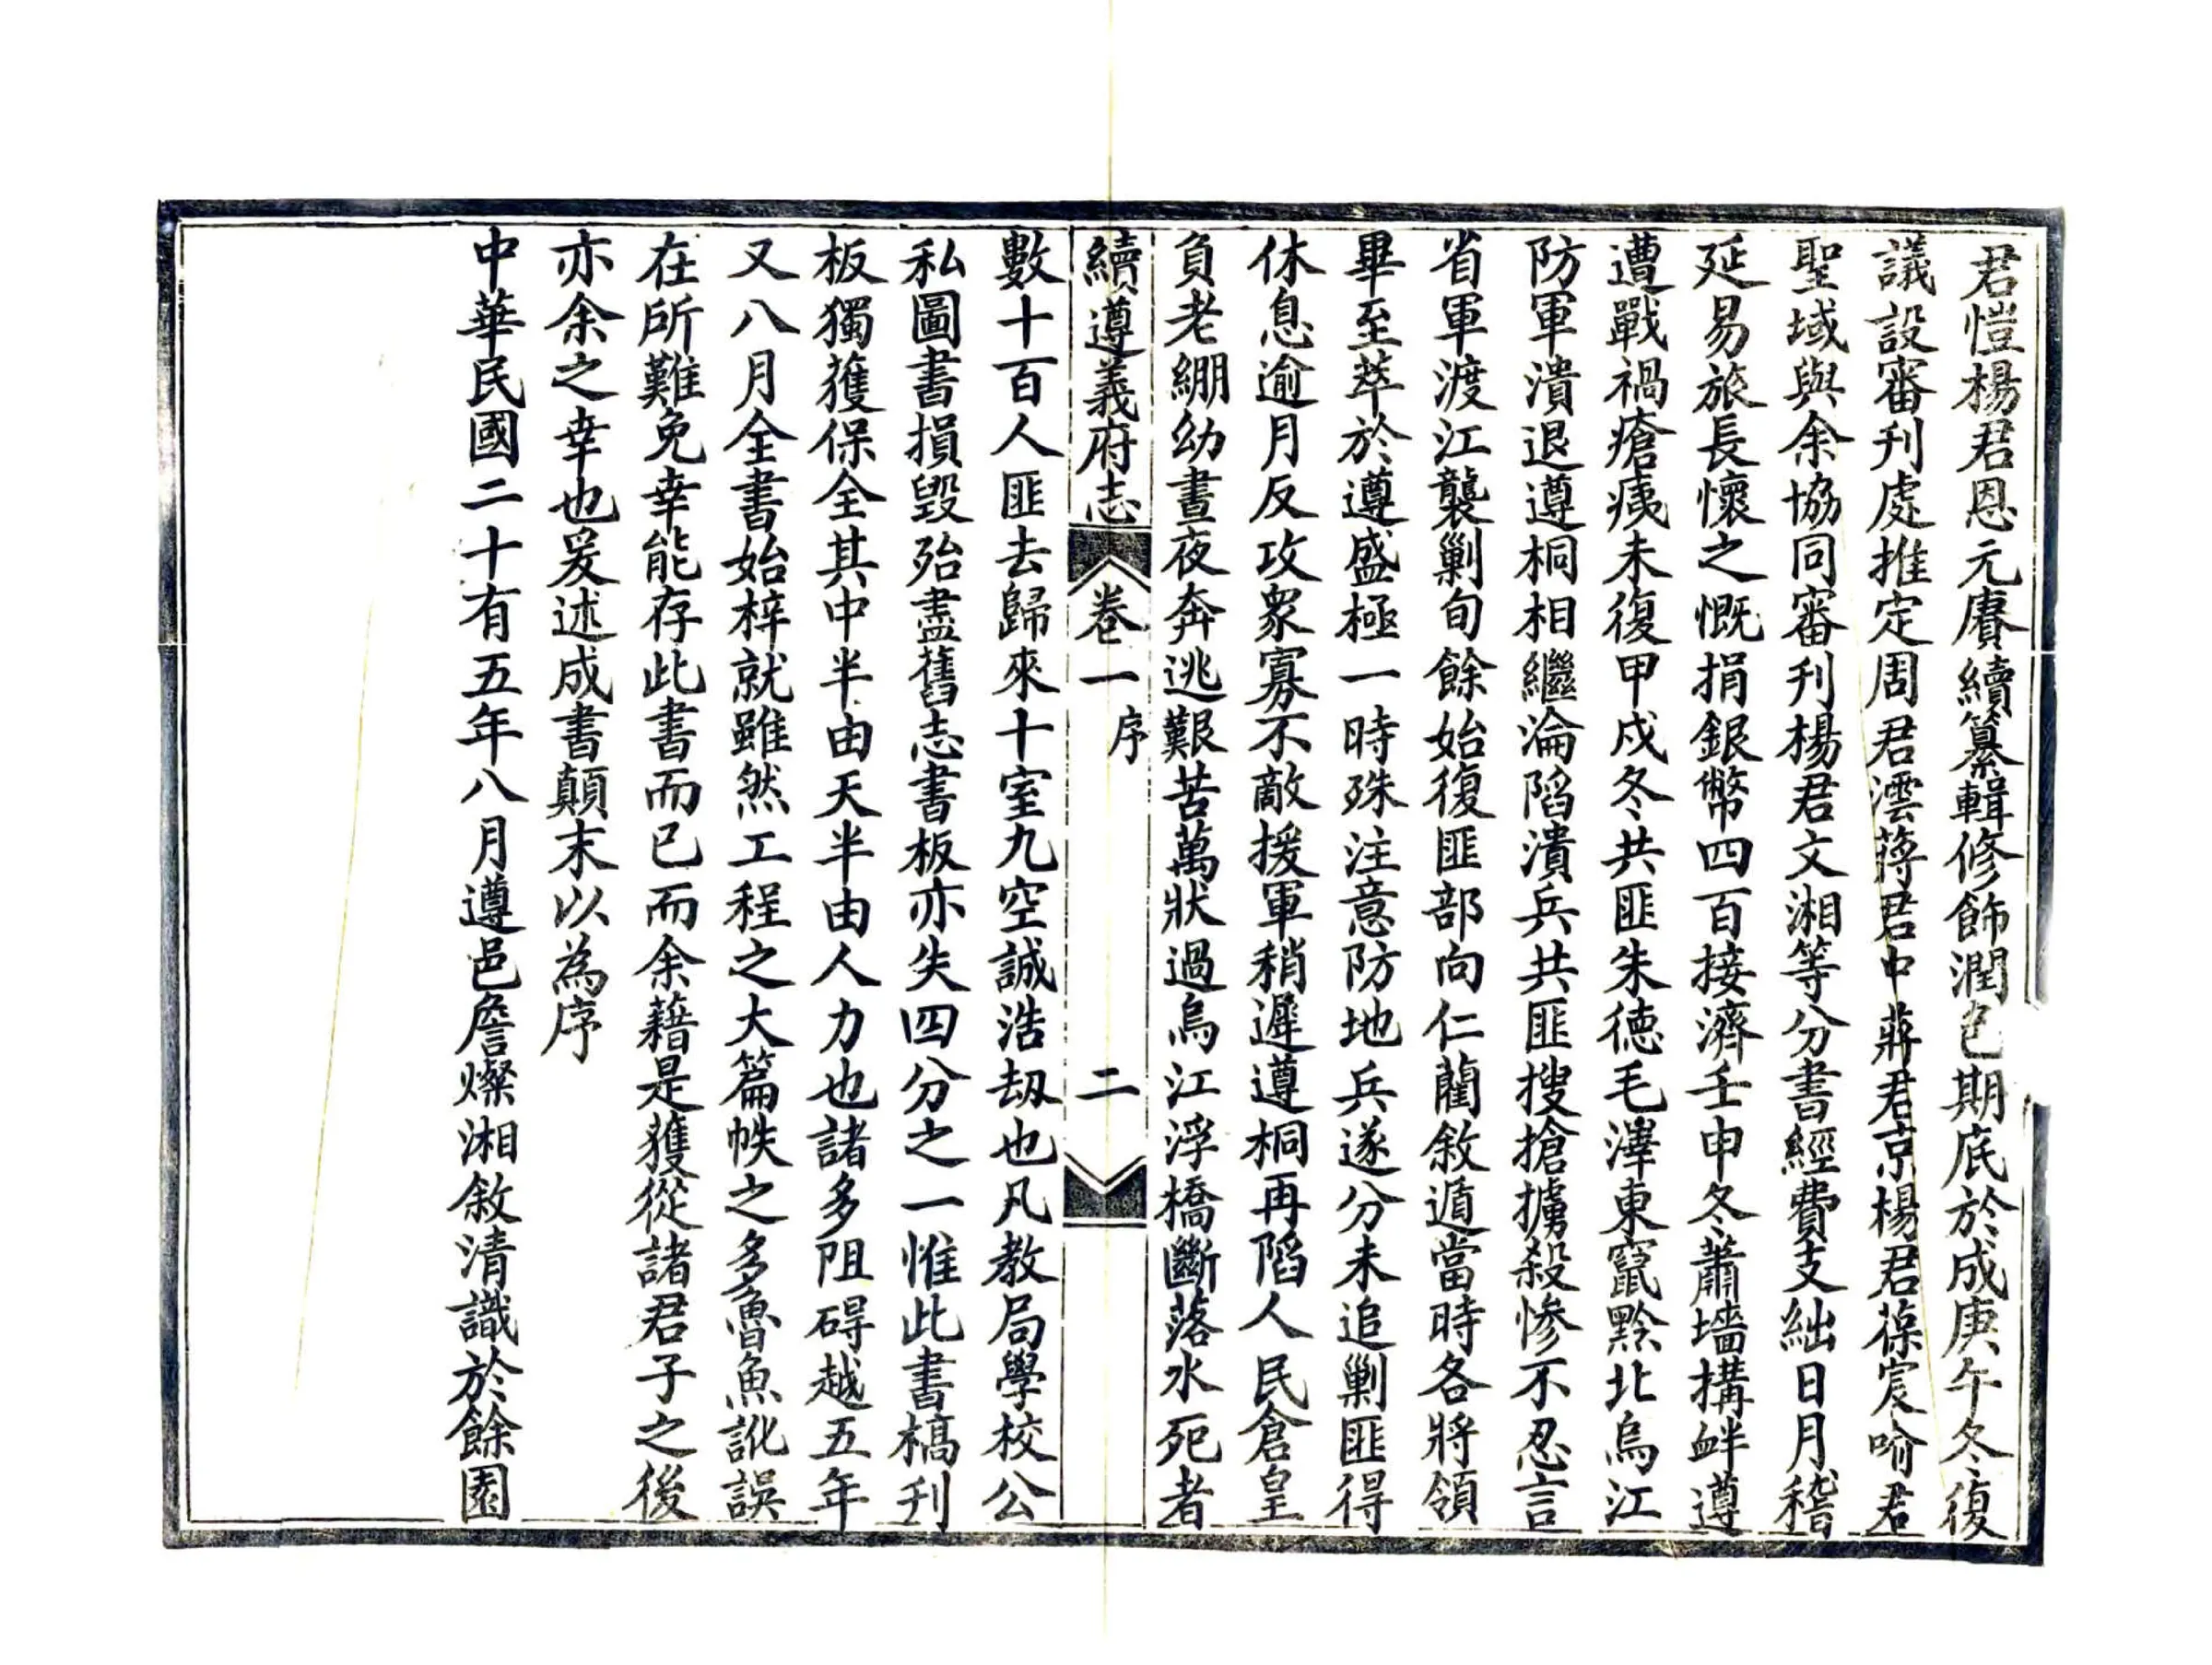 君愷楊君恩元賡續纂輯修飾潤色期底於成庚午冬復
議設審刊處推定周君澐蔣君中蔣君京楊君葆宸喻君
聖域與余協同審刊楊君文湘等分書經費支絀日月稽
延易旅長懷之慨捐銀幣四百接濟壬申冬蕭墻搆衅遵
遭戰禍瘡痍未復甲戍冬共匪朱德毛澤東竄黔北烏江
防軍潰退遵桐相繼淪陷潰兵共匪搜搶擄殺慘不忍言
省軍渡江襲剿旬餘始復匪部向仁藺敘遁當時各將領
畢至萃於遵盛極一時殊注意防地兵遂分未追剿匪得
休息逾月反攻衆寡不敵援軍稍遲遵桐再陷人民倉皇
負老綳幼晝夜奔逃艱苦萬狀過烏江浮橋斷落水死者
續遵義府志 卷一 序 二
數十百人匪去歸來十室九空誠浩刼也凡教局學校公
私圖書損毀殆盡舊志書板亦失四分之一惟此書槁刋
板獨獲保全其中半由天半由人力也諸多阻碍越五年
又八月全書始梓就雖然工程之大篇帙之多魯魚訛誤
在所難免幸能存此書而已而余藉是獲從諸君子之後
亦余之幸也爰述成書顛末以為序
中華民國二十有五年八月遵邑詹燦湘敘清識於餘園